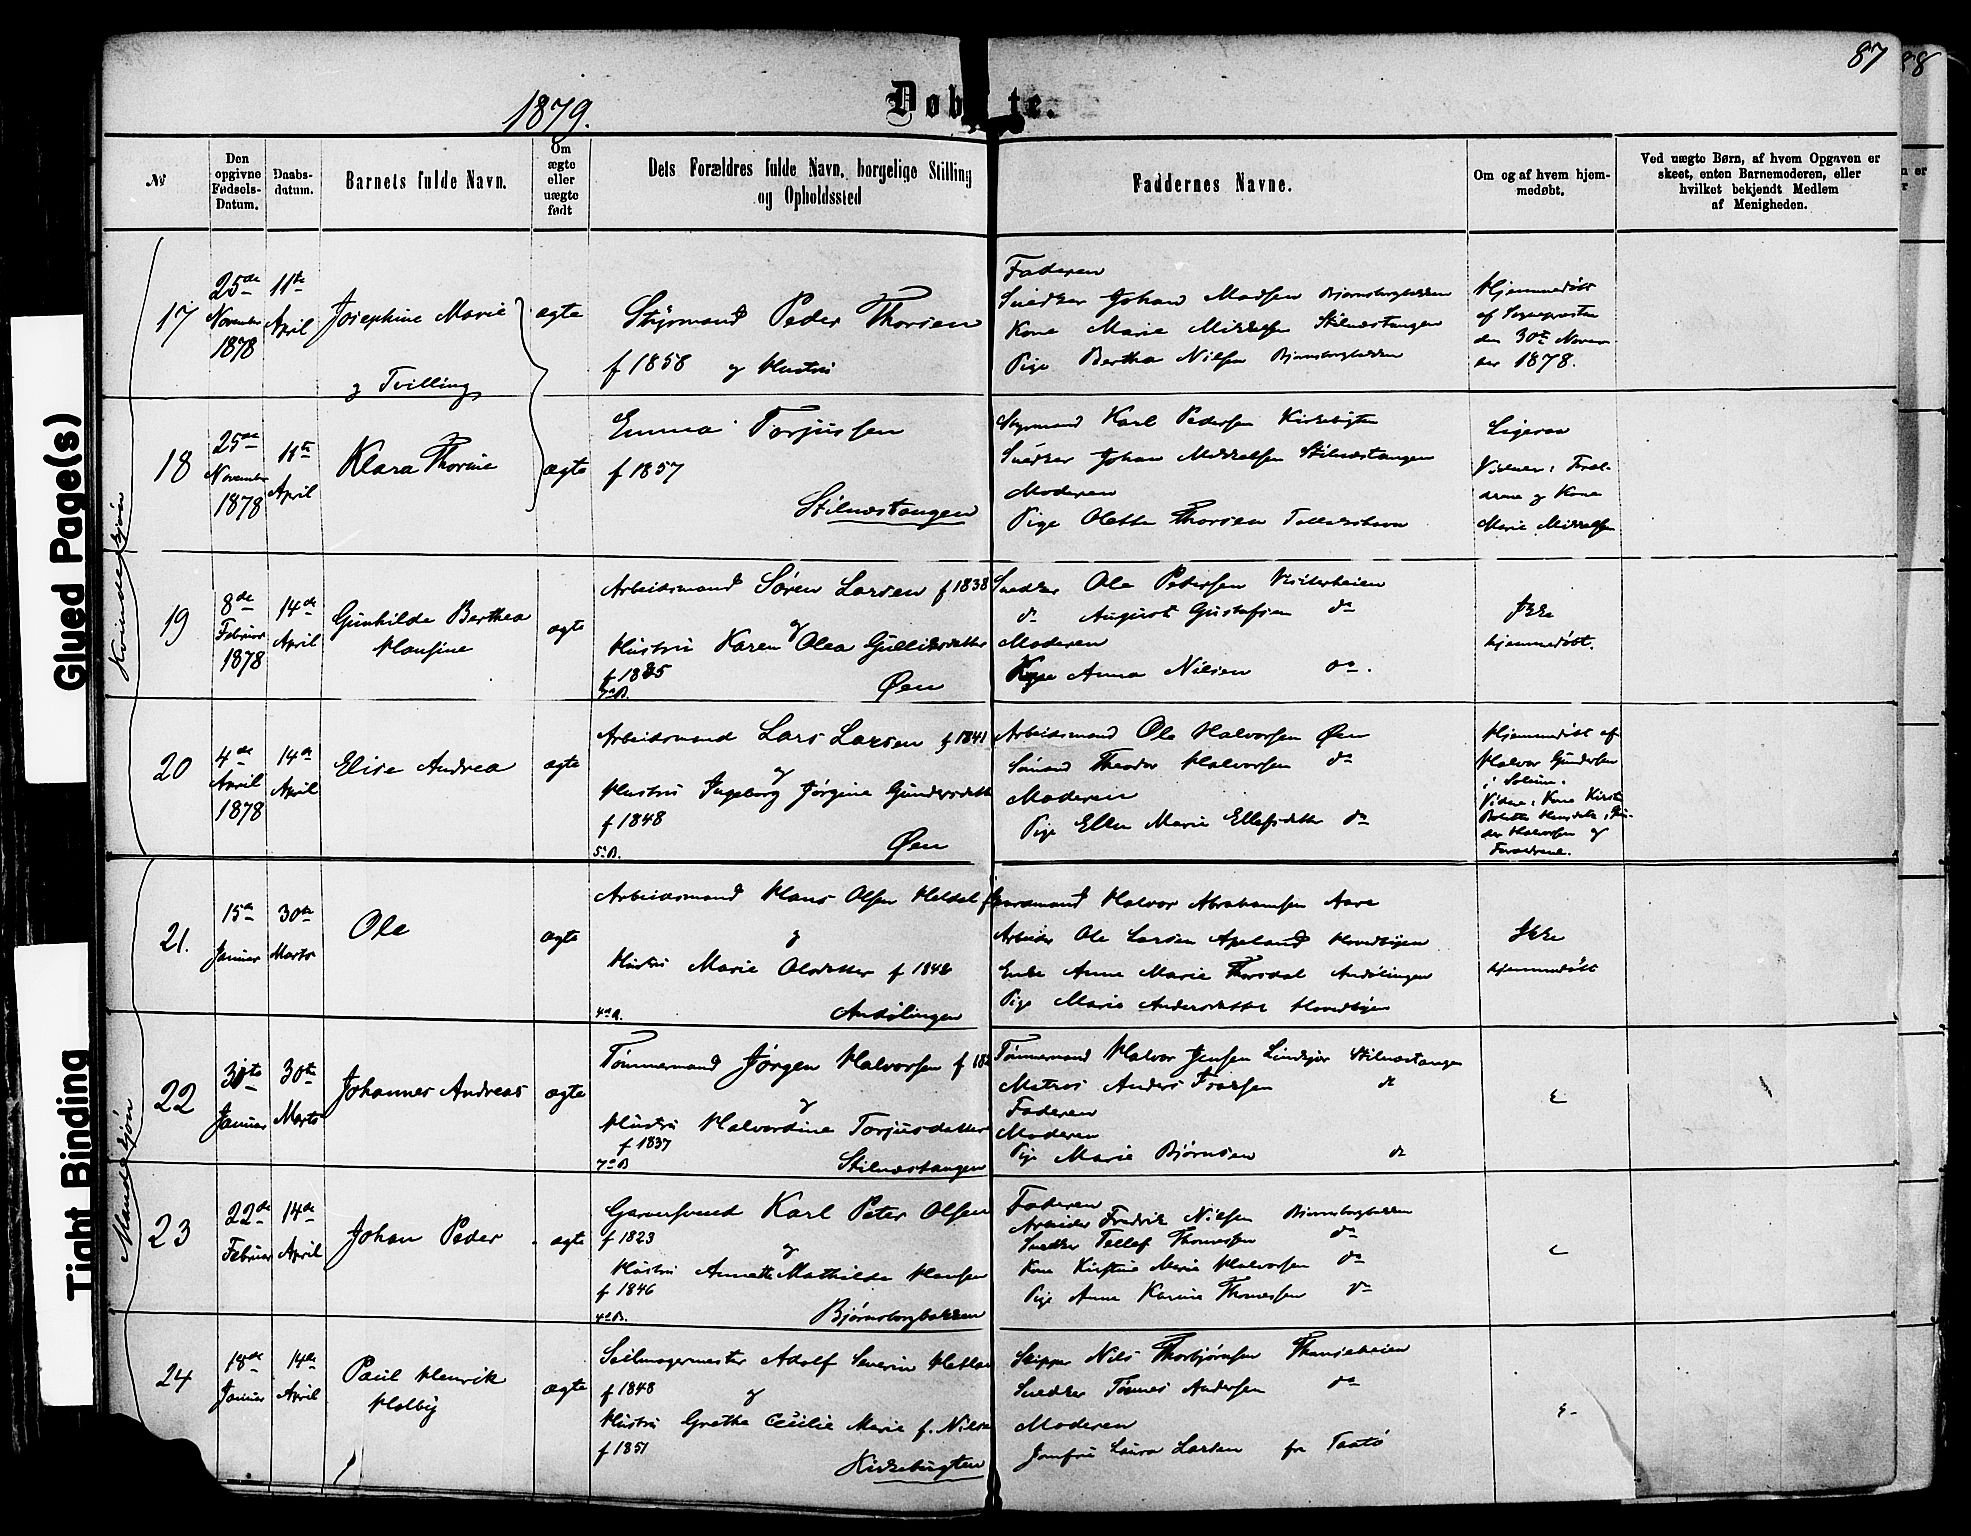 87
88
1879.
Døbte.
№
Den opgivne Fødsels-Datum.
Daabs-datum.
Barnets fulde Navn.
Om ægte eller uægte født
Dets Forældres fulde Navn, borgelige Stilling og Opholdssted
Faddernes Navne.
Om og af hvem hjem-medøbt.
Ved uægte Børn, af hvem Opgaven er skeet, enten Barnemoderen, eller hvilket bekjendt Medlem af Menigheden.
Glued Page(s)
Tight Binding
Kvindekjøn
17
25de November 1878
11te April
Josephine Marie
ægte
Styrmand Peder Thorsen
f 1858 og Hustru
Faderen
Snedker Johan Madsen Bjørnsborgbakken
Kone Marie Mikkelsen Stilnæstangen
Pige Bertha Nilsen Bjørnsborgbakken
Hjemmedøbt
af Sognepræsten
den 30te Novem
ber 1878.
g Tvilling
18
25de November 1878
11te April
Klara Thorine
ægte
Emma Torjussen
f 1857
Stilnæstangen
Styrmand Karl Pedersen Kirkebugten
Snedker Johan Mikkelsen Stilnæstangen
Moderen
Pige Olette Thorsen
Ligesaa
Vidner: Foræl-
drene og Kone
Marie Mikkelsen
19
8de Februar 1878
14de April
Gunhilde Berthea
Hansine
ægte
Arbeidsmand Søren Larsen f 1838
og
Hustru Karen Olea Gulliksdatter
f 1835
7de B.
Øen
Snedker Ole Pedersen Vesterheien
do August Gustafsen do
Moderen
Pige Anna Nilsen do.
Ikke
hjemmedøbt.
20
4de April 1878
14de April
Elise Andrea
ægte
Arbeidsmand Lars Larsen f 1841
og
Hustru Ingeborg Jørgine Gundersdatte
f 1848
5te B.
Øen
Arbeidsmand Ole Halvorsen Øen
Sømand Theodor Halvorsen do
Moderen
Pige Ellen Marie Ellefsdatter do
Hjemmedøbt af
Halvor Gundersen
i Solum.
Vidne: Kone Kirsten
der Halvorsen og
Forældrene.
Mandkjøn
21.
15de Januar
30te Marts
Ole
ægte
Arbeidsmand Hans Olsen Heldal
og
Hustru Marie Olsdatter f 1848
4de B.
Andølingen
Gaardmand Halvor Abrahamsen Aarø
Arbeider Ole Larsen Apeland Hovedbyen
Enke Anne Marie Thorsdal Andølingen
Pige Marie Andersdatter Hovedbyen
Ikke
hjemmedøbt
22
31te Januar
30te Marts
Johannes Andreas
ægte
Tømmermand Jørgen Halvorsen f 182
og
Hustru Halvordine Torjusdatter
f 1837
7de B
Stilnæstangen
Tømmermand Halvor Jensen Lindkjær Stilnæstangen
Matros Anders Ivarsen do
Faderen
Moderen
Pige Marie Bjørnsen do
23
22de Februar
14de April
Johan Peder
ægte
Garversvend Karl Peter Olsen
f 1823
og
Hustru Annette Mathilde Hansen
f 1846
4de B.
Bjørnsborgbakken
Faderen
Arbeider Fredrik Nielsen Bjørnsborgbakken
Snedker Tellef Thomessen do
Kone Kirstine Marie Halvorsen do
Pige Anne Karine Thomessen do
24
18de Januar
14de April
Paul Henrik
Holby
ægte
Seilmagermester Adolf Severin Hetlan
f 1848
og
Hustru Grethe Cecilie Marie f. Nilsen
f 1851
Kirkebugten
Skipper Nils Thorbjørnsen
Snedker Tønnes Andersen do
Moderen
Jomfru Laura Larsen fr Taatø